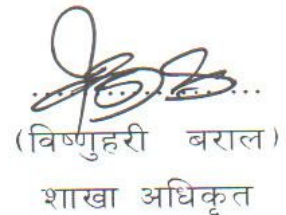 (विष्णुहरी बराल)
शाखा अधिकृत